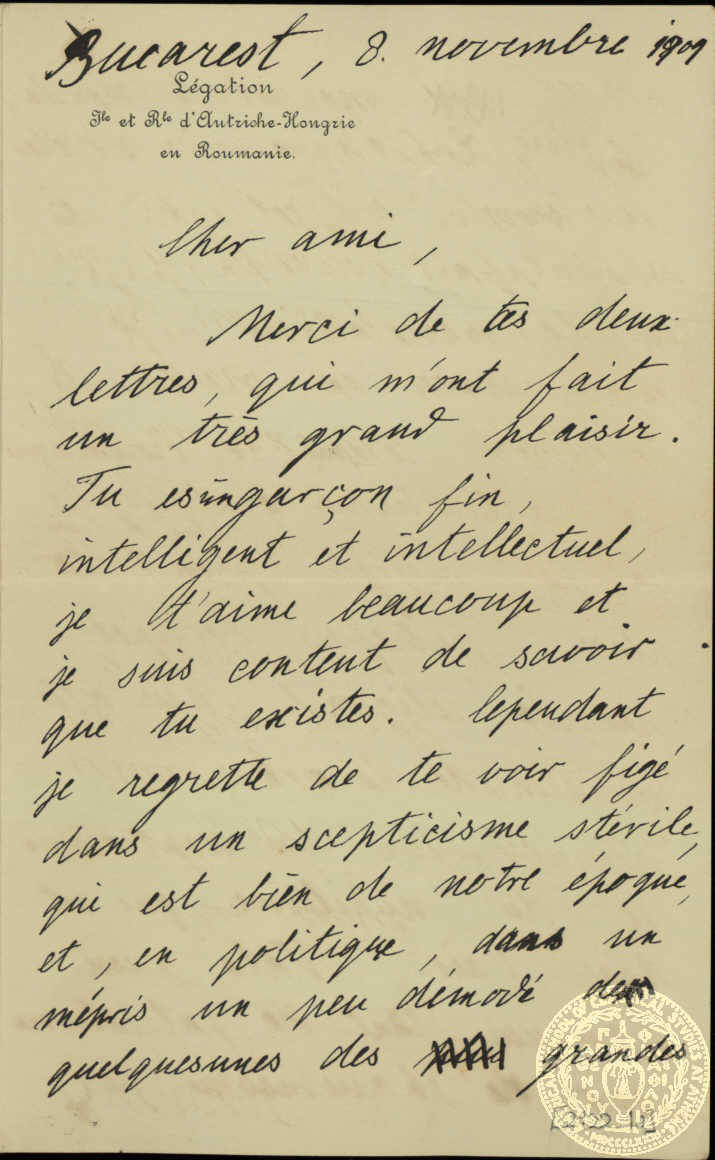 Bucarest, 8. novembre 1909
Légation
Ile et Rle d'Autriche-Hongrie
en Roumanie.
Cher ami,
Merci de tes deux
lettres, qui m'ont fait
un très grand plaisir.
Tu es un garçon fin,
intelligent et intellectuel,
je t'aime beaucoup et
je suis content de savoir
que tu existes. Cependant
je regrette de te voir figé
dans un scepticisme stérile,
qui est bien de notre époque,
et, en politique, dans un
mépris un peu démodé de
quelquesunes des grandes